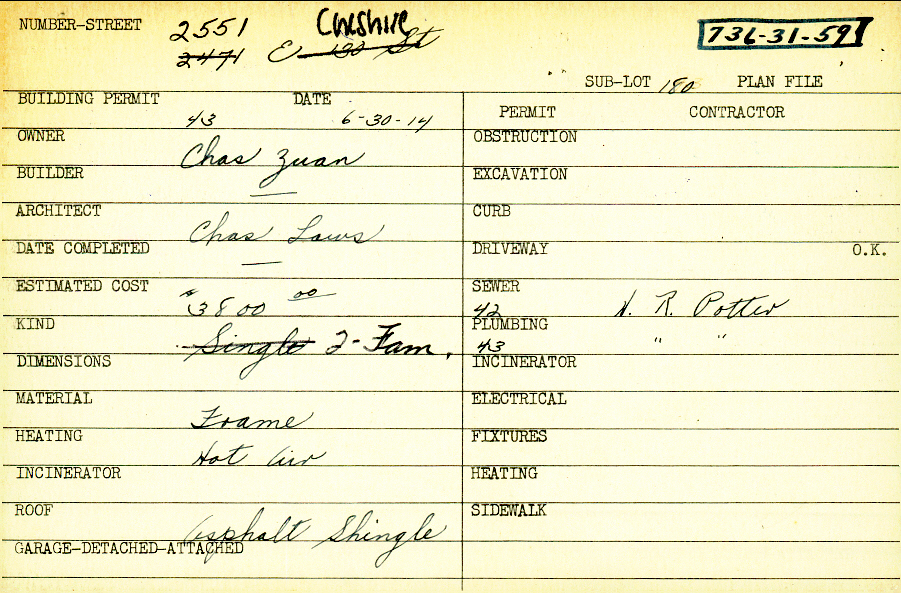 NUMBER-STREET 2551 Cheshire 736-31-59
2471 E 130 St
SUB-LOT 180 PLAN FILE
BUILDING PERMIT 43 DATE 6-30-14
PERMIT CONTRACTOR
OWNER Chas Zuan
OBSTRUCTION
BUILDER —
EXCAVATION
ARCHITECT Chas Laws
CURB
DATE COMPLETED —
DRIVEWAY O.K.
ESTIMATED COST $3800 00
SEWER 42 N. R. Potter
KIND Single 2-Fam.
PLUMBING 43 " "
DIMENSIONS
INCINERATOR
MATERIAL Frame
ELECTRICAL
HEATING Hot Air
FIXTURES
INCINERATOR
HEATING
ROOF Asphalt Shingle
SIDEWALK
GARAGE-DETACHED-ATTACHED